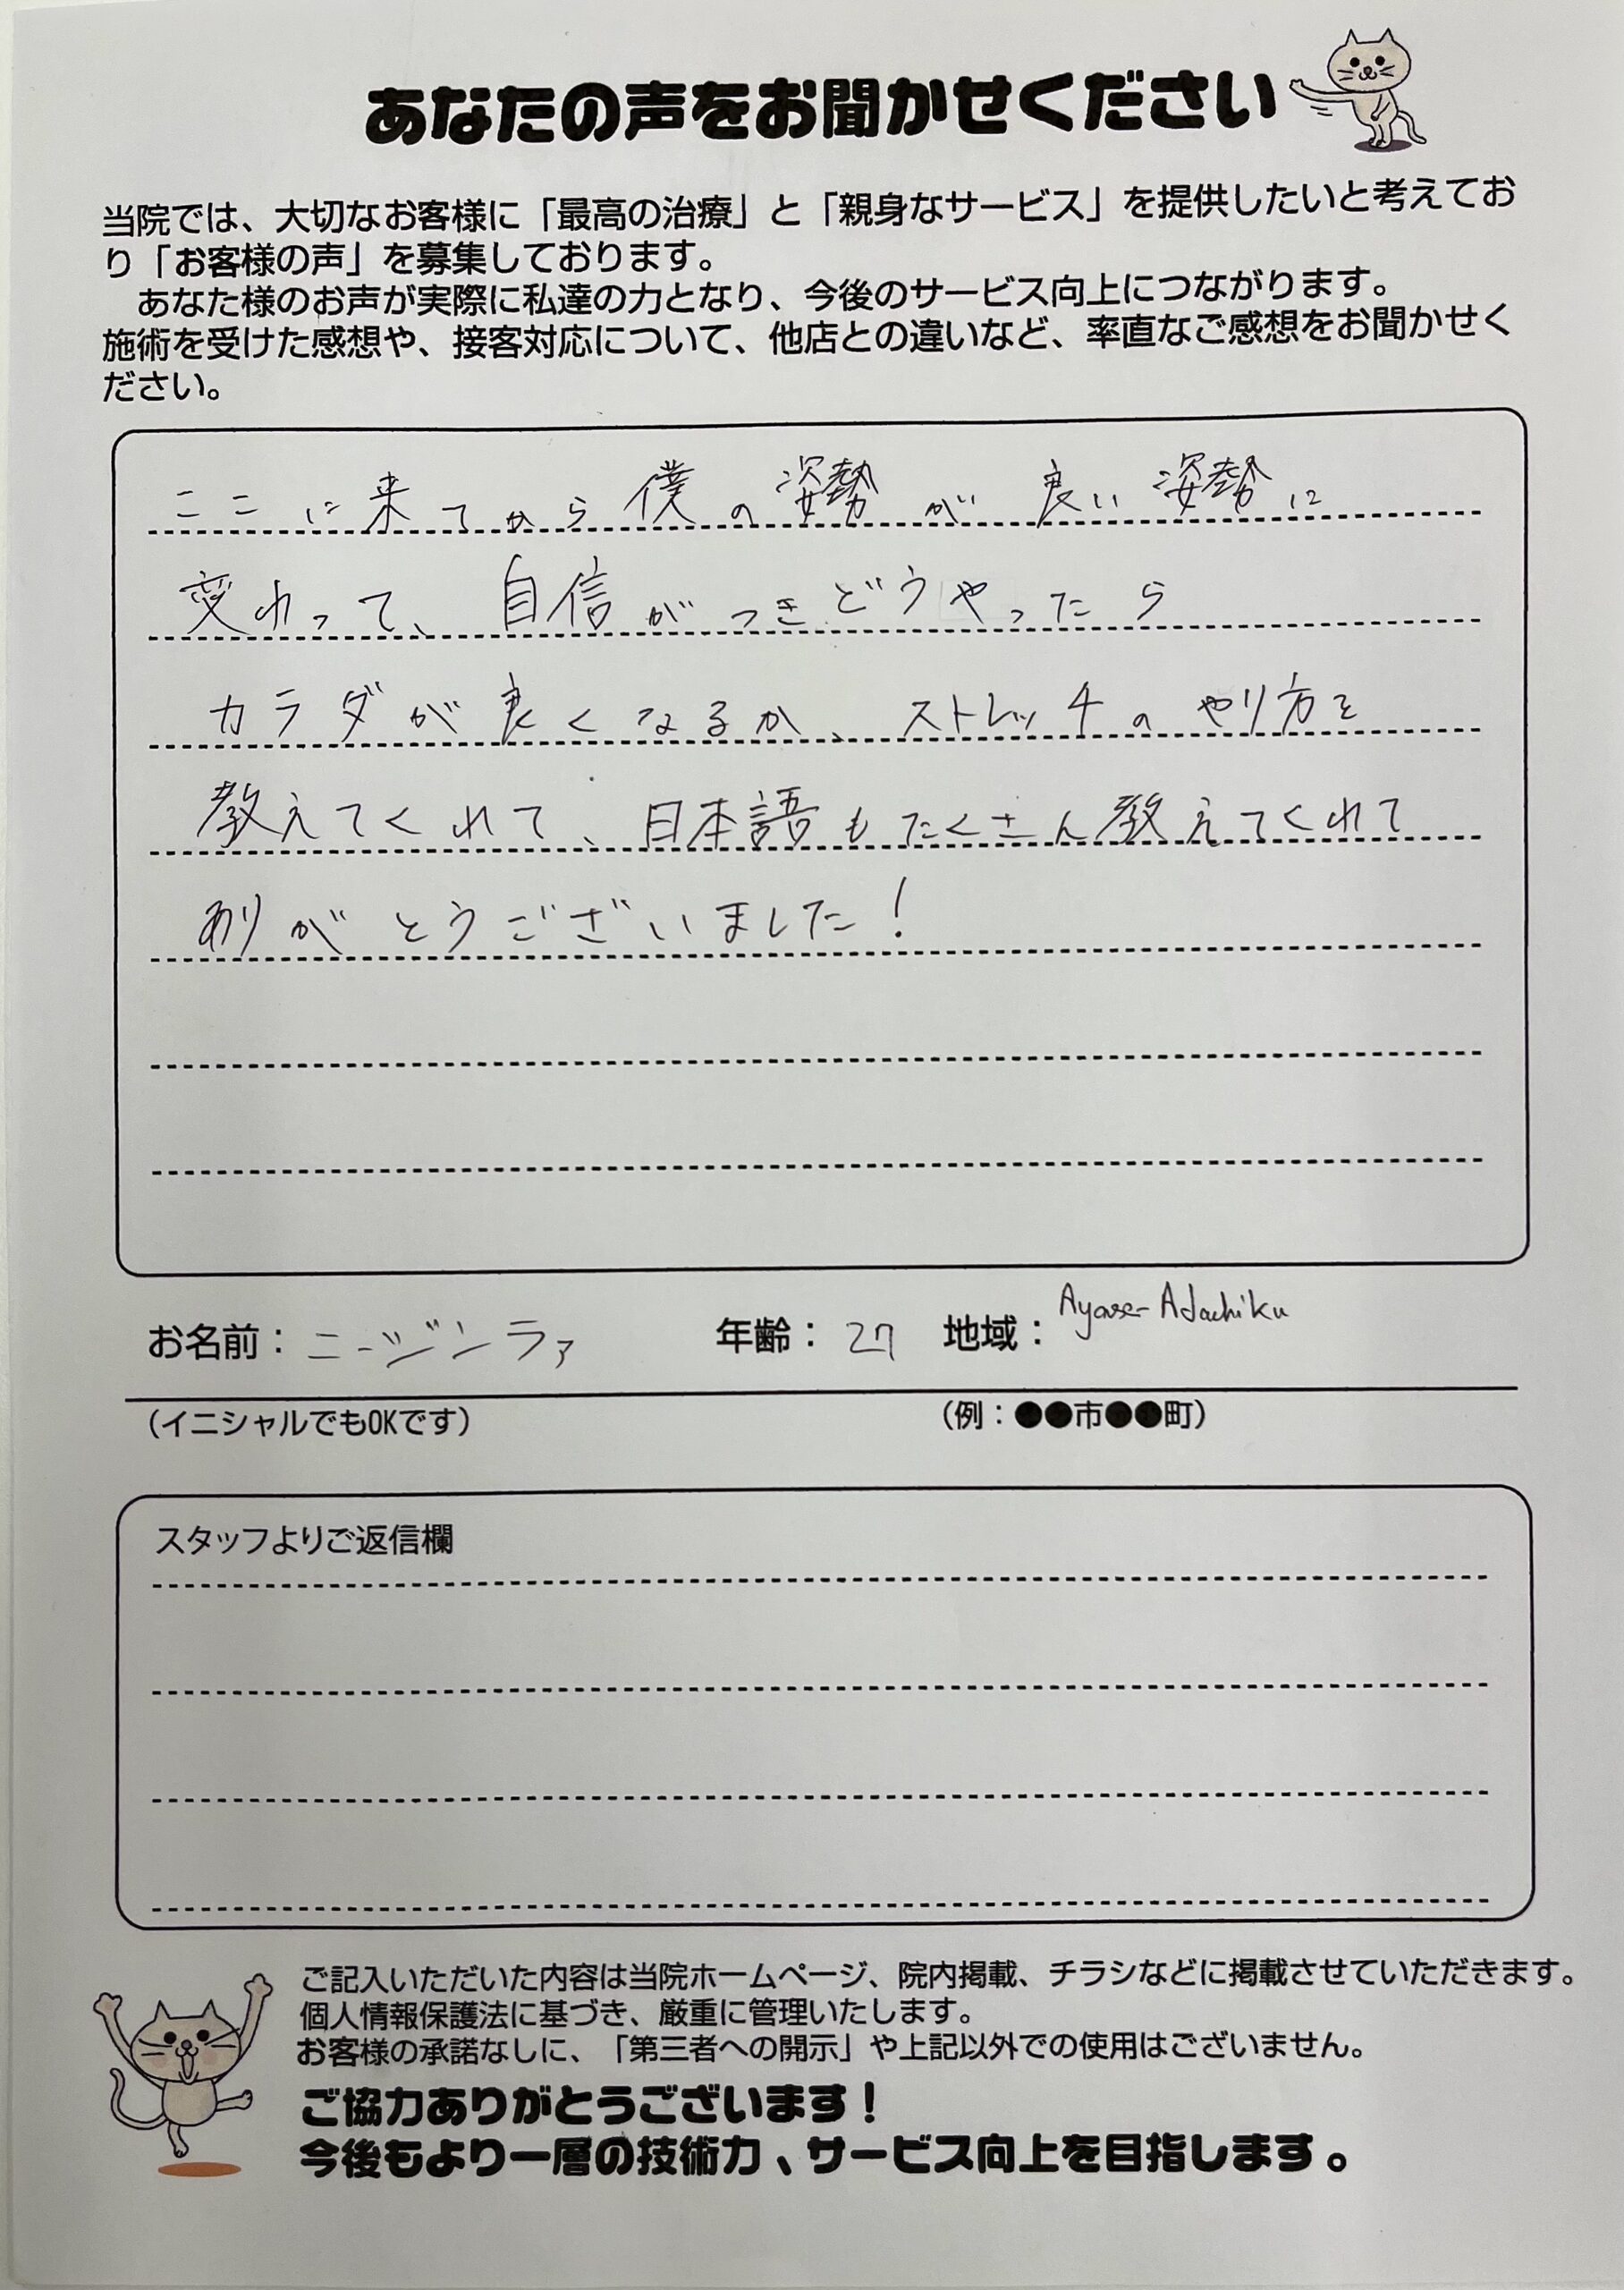 あなたの声をお聞かせください
当院では、大切なお客様に「最高の治療」と「親身なサービス」を提供したいと考えてお
り「お客様の声」を募集しております。
あなた様のお声が実際に私達の力となり、今後のサービス向上につながります。
施術を受けた感想や、接客対応について、他店との違いなど、率直なご感想をお聞かせく
ださい。
ここに来てから僕の姿勢が良い姿勢に
変わって、自信がつきどうやったら
カラダが良くなるか、ストレッチのやり方を
教えてくれて、日本語もたくさん教えてくれて
ありがとうございました！
お名前：ニージンラァ 年齢：27 地域：Ayase-Adachiku
（イニシャルでもOKです） （例：●●市●●町）
スタッフよりご返信欄
ご記入いただいた内容は当院ホームページ、院内掲載、チラシなどに掲載させていただきます。
個人情報保護法に基づき、厳重に管理いたします。
お客様の承諾なしに、「第三者への開示」や上記以外での使用はございません。
ご協力ありがとうございます！
今後もより一層の技術力、サービス向上を目指します。